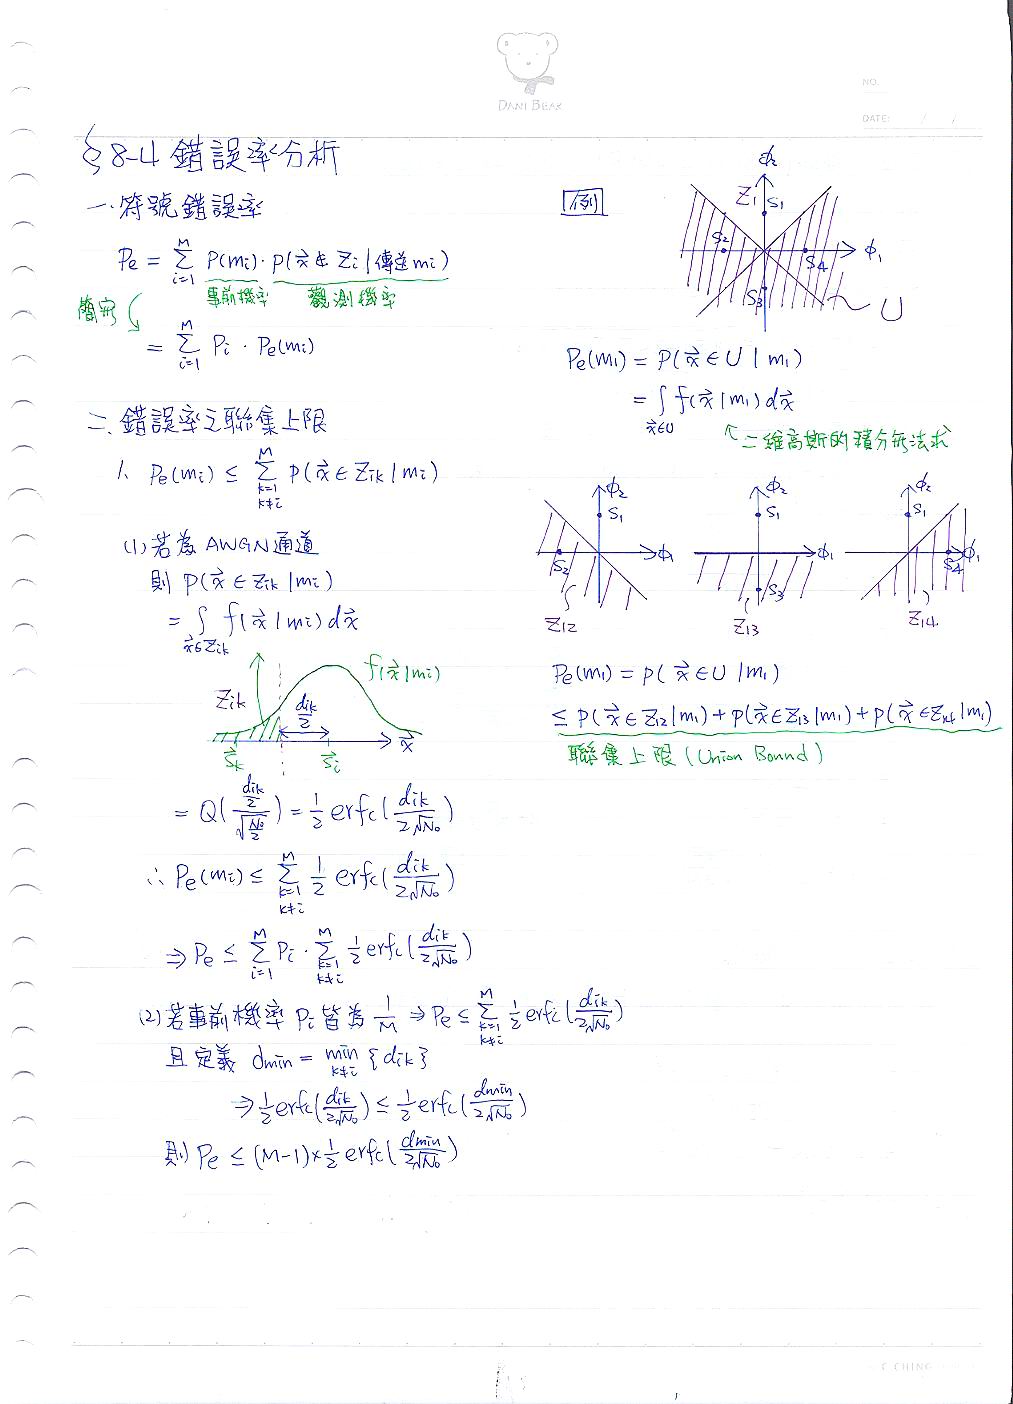 DANI BEAR
NO.
DATE: / /
§8-4 錯誤率分析
一. 符號錯誤率
Pe = Σ_{i=1}^{M} P(mi)·P(x⃗ ∉ Zi | 傳送 mi)
事前機率 觀測機率
簡寫
= Σ_{i=1}^{M} Pi · Pe(mi)
二. 錯誤率之聯集上限
1. Pe(mi) ≤ Σ_{k=1, k≠i}^{M} P(x⃗ ∈ Zik | mi)
(1) 若為 AWGN 通道
則 P(x⃗ ∈ Zik | mi)
= ∫_{x⃗∈Zik} f(x⃗ | mi) dx⃗
f(x⃗ | mi)
Zik dik/2 x⃗
S⃗k S⃗i
= Q((dik/2)/√(No/2)) = 1/2 erfc(dik/2√No)
∴ Pe(mi) ≤ Σ_{k=1, k≠i}^{M} 1/2 erfc(dik/2√No)
⇒ Pe ≤ Σ_{i=1}^{M} Pi · Σ_{k=1, k≠i}^{M} 1/2 erfc(dik/2√No)
(2) 若事前機率 Pi 皆為 1/M ⇒ Pe ≤ Σ_{k=1, k≠i}^{M} 1/2 erfc(dik/2√No)
且定義 dmin = min_{k≠i} {dik}
⇒ 1/2 erfc(dik/2√No) ≤ 1/2 erfc(dmin/2√No)
則 Pe ≤ (M-1)×1/2 erfc(dmin/2√No)
例
ϕ2
Z1 S1
S2 S4 ϕ1
S3 U
Pe(m1) = P(x⃗ ∈ U | m1)
= ∫_{x⃗∈U} f(x⃗ | m1) dx⃗
二維高斯的積分無法求
ϕ2 ϕ2 ϕ2
S1 S1 S1
S2 ϕ1 ϕ1 S4 ϕ1
S3
Z12 Z13 Z14
Pe(m1) = P(x⃗ ∈ U | m1)
≤ P(x⃗ ∈ Z12 | m1) + P(x⃗ ∈ Z13 | m1) + P(x⃗ ∈ Z14 | m1)
聯集上限 (Union Bound)
C CHING